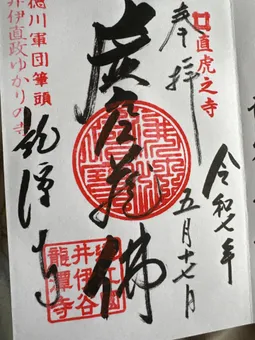 直虎之寺
奉拝
令和七年
五月十七日
虚空蔵佛
徳川軍団筆頭
井伊直政ゆかりの寺
龍潭寺
遠江國
井伊谷
龍潭寺